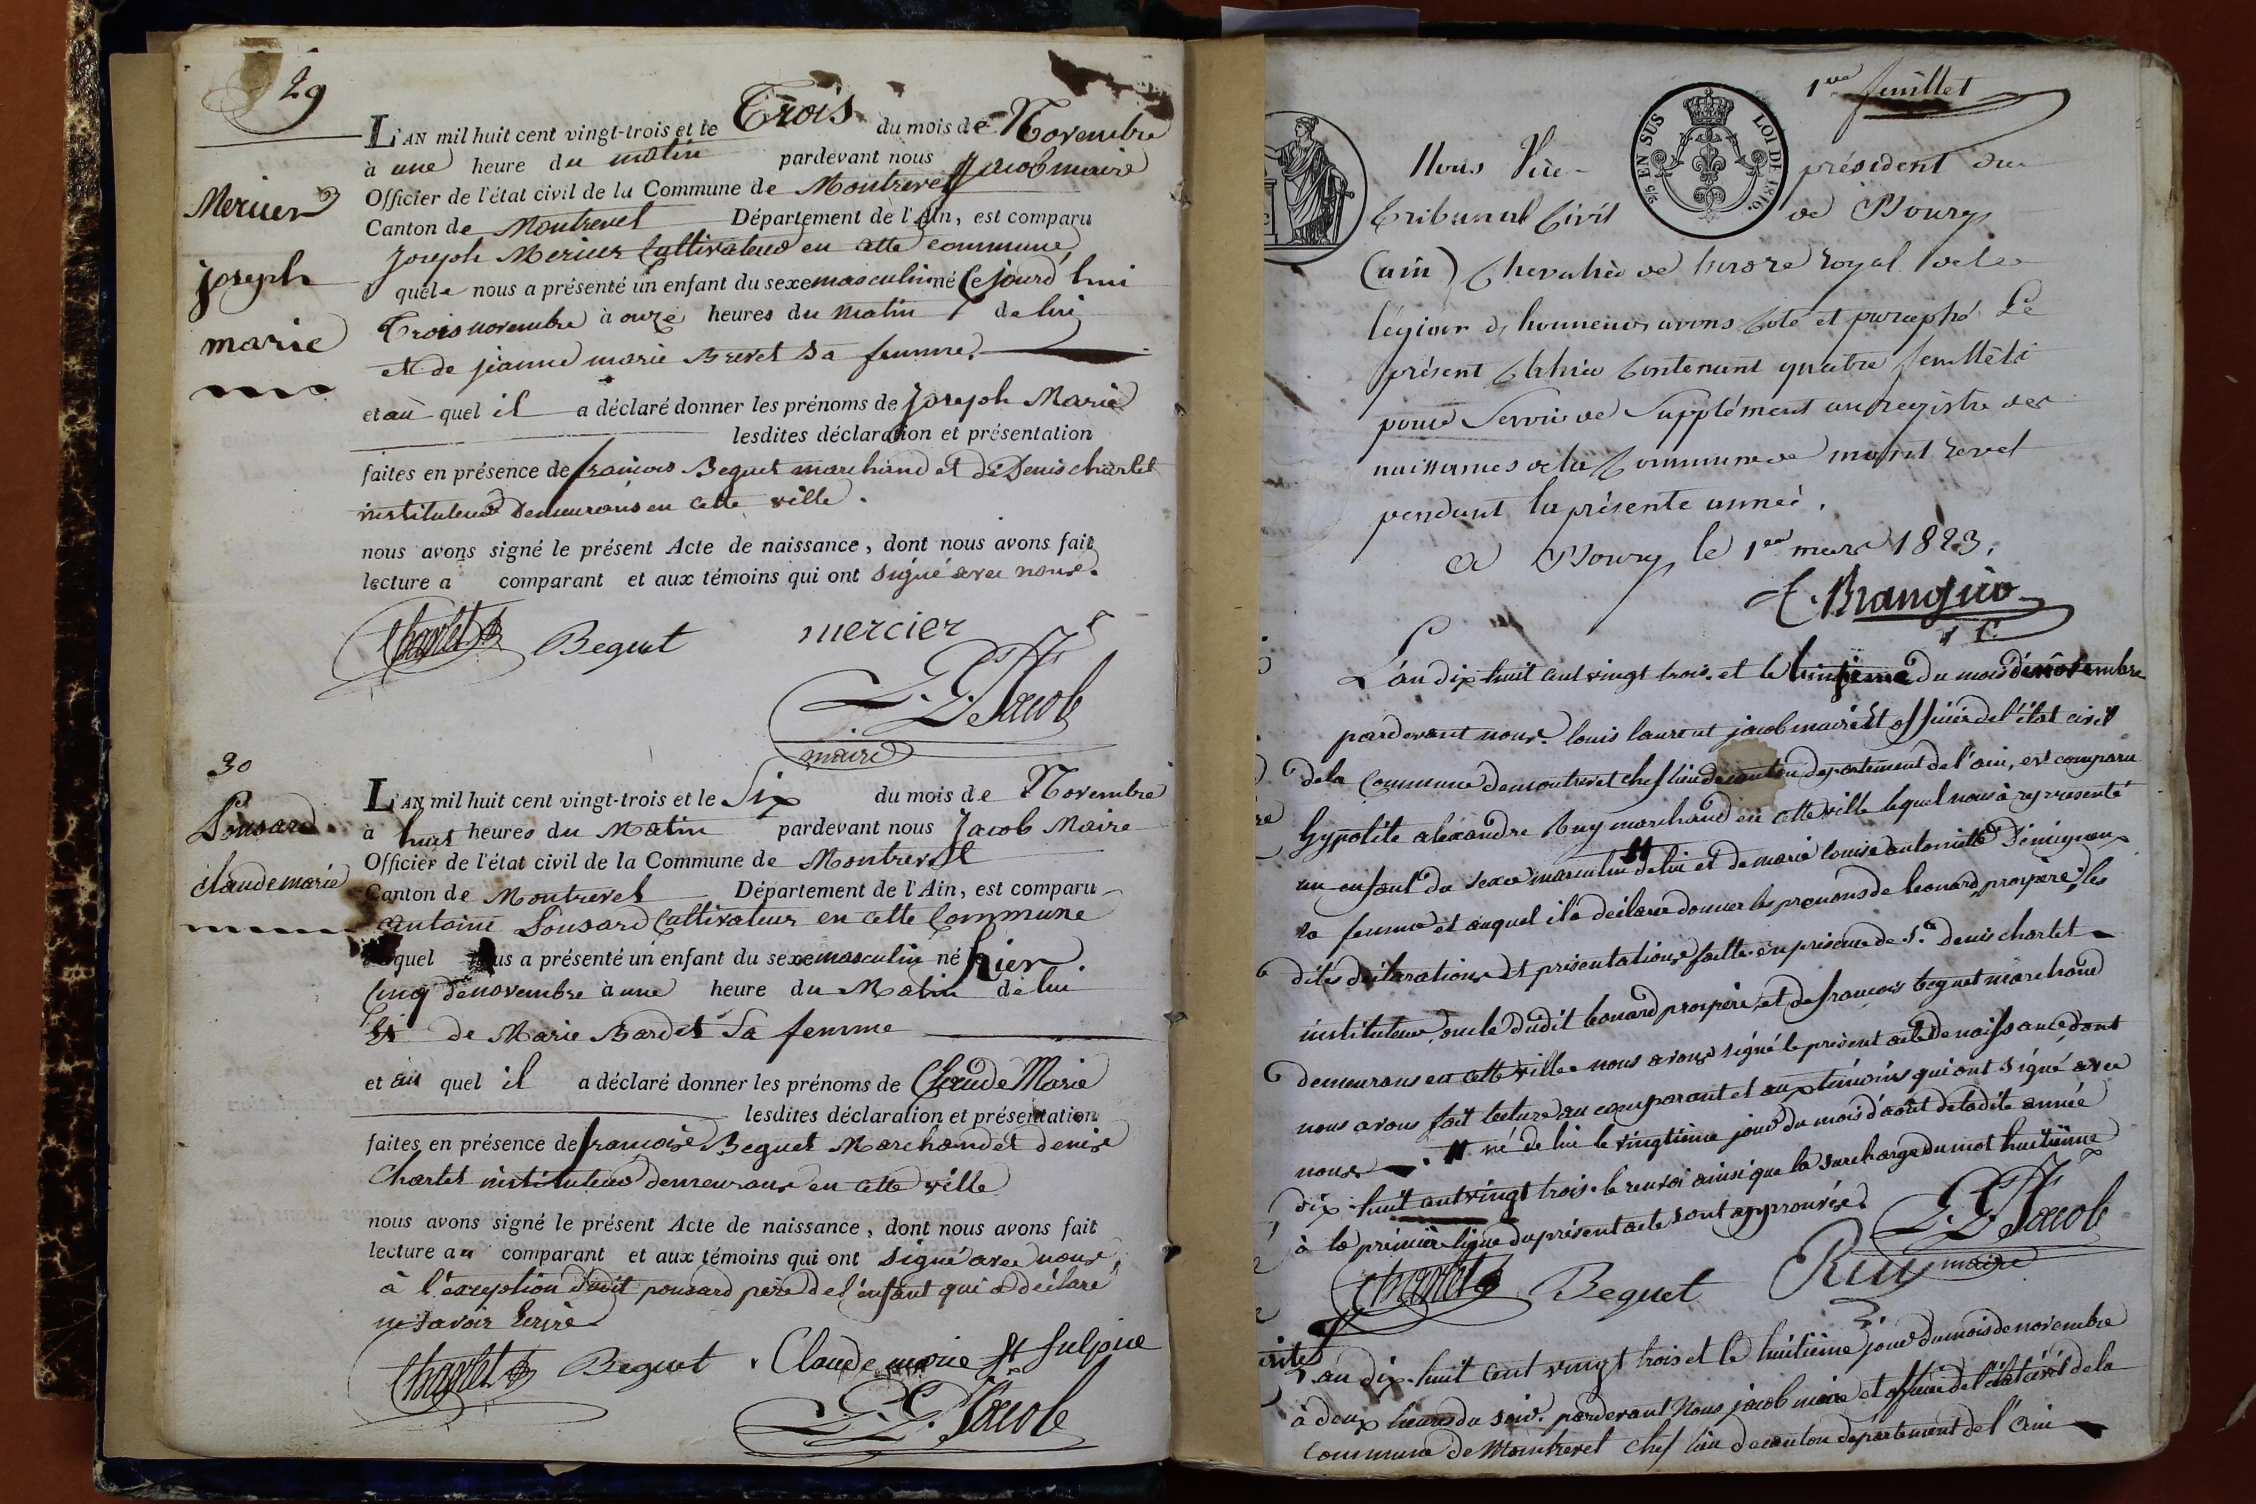 29
L'AN mil huit cent vingt-trois et le Trois du mois de Novembre
à une heure du matin pardevant nous Jacob maire
Officier de l'état civil de la Commune de Montrevel
Canton de Montrevel Département de l'Ain, est comparu
Joseph Mercier Cultivateur en cette commune
quel nous a présenté un enfant du sexe masculin né Ce jourd'hui
Trois novembre à onze heures du matin de lui
et de jeanne marie Brevet sa femme.
et au quel il a déclaré donner les prénoms de Joseph Marie
lesdites déclaration et présentation
faites en présence de francois Beguet marchand et de Denis charlet
instituteur demeurans en cette ville.
nous avons signé le présent Acte de naissance, dont nous avons fait
lecture a comparant et aux témoins qui ont signé avec nous.
Charlet Beguet mercier
L. L. Jacob
maire
Mercier
joseph
marie
30
Pousard
claude marie
L'AN mil huit cent vingt-trois et le Six du mois de Novembre
à huit heures du Matin pardevant nous Jacob Maire
Officier de l'état civil de la Commune de Montrevel
Canton de Montrevel Département de l'Ain, est comparu
antoine Pousard Cultivateur en cette Commune
quel nous a présenté un enfant du sexe masculin né hier
Cinq de novembre à une heure du Matin de lui
Et de Marie Bardet Sa femme
et au quel il a déclaré donner les prénoms de Claude Marie
lesdites déclaration et présentation
faites en présence de francois Beguet Marchand et denis
Charlet instituteur demeurans en cette ville
nous avons signé le présent Acte de naissance, dont nous avons fait
lecture au comparant et aux témoins qui ont signé avec nous
à l'exception dudit pousard père de l'enfant qui a déclaré
ne savoir Ecrire
Charlet Beguet Claude marie St Sulpice
L. L. Jacob
1er feuillet
EN SUS LOI DE 1816.
Nous Vice-président du
Tribunal Civil de Bourg
(ain) Chevalier de l'ordre royal de la
légion d'honneur avons Coté et paraphé Le
présent Cahier Contenant quatre feuillets
pour Servir de Supplément au registre des
naissances de la Commune de mont revel
pendant la présente année.
a Bourg, le 1er mars 1823.
L'an dix huit cent vingt trois. et le huitieme du mois de novembre
pardevant nous. louis laurent jacob maire Et officier de l'état civil
de la Commune de montrevel chef lieu de canton departement de l'ain, est comparu
hypolite alexandre Ruy marchand en cette ville lequel nous à representé
un enfant du sexe masculin de lui et de marie louise antoinette
sa femme et auquel il a déclaré donner les prenoms de leonard, prospere; les
dites déclarations et présentations faitte en présence de Sr. denis charlet
instituteur, oncle dudit leonard prospere, et de francois beguet marchand
demeurans en cette ville nous avons signé le présent acte de naissance dont
nous avons fait lecture au comparant et aux témoins qui ont signé avec
nous. né de lui le vingtième jour du mois d'août de ladite année
dix huit cent vingt trois. le renvoi ainsi que la surcharge du mot huitième
à la première ligne du présent acte sont approuvés.
L. L. Jacob
maire
Charlet Beguet Ruy
L'an dix huit cent vingt trois et le huitième jour du mois de novembre
à deux heures du soir. pardevant Nous jacob maire et officier de l'état civil de la
commune de Montrevel chef lieu de canton département de l'ain